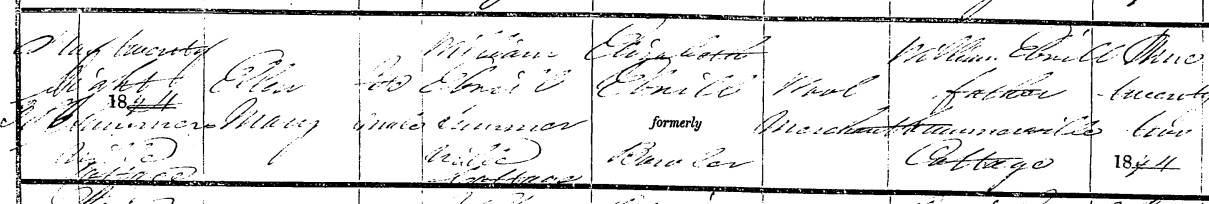 May twenty
eight
1844
Summer
ville
Cottage
Ellen
Mary
Fe
male
William
Ebrill
Summer
ville
Cottage
Elizabeth
Ebrill
formerly
Bowler
Wool
Merchant
William Ebrill
father
Summerville
Cottage
June
twenty
two
1844